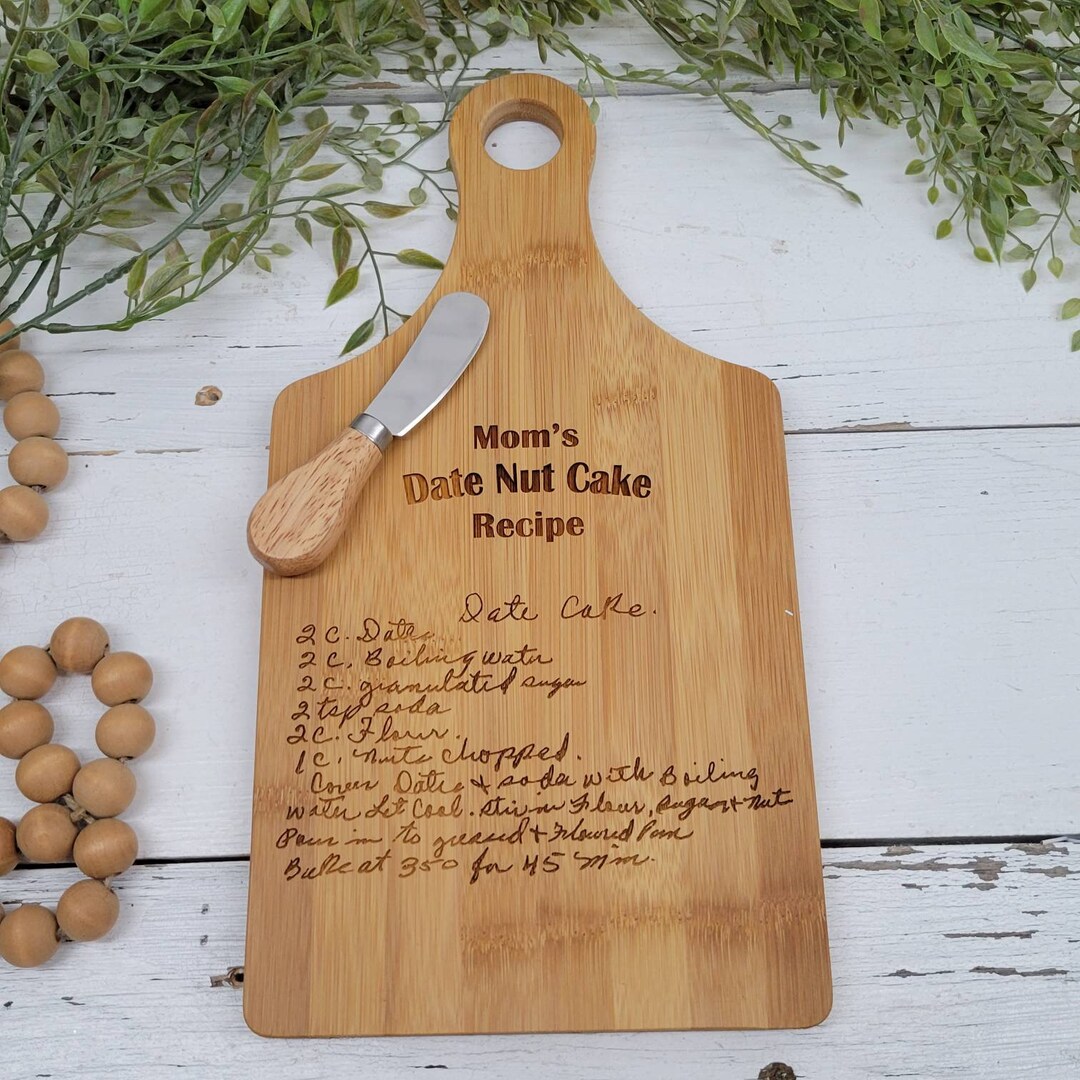 Mom's
Date Nut Cake
Recipe
Date Cake.
2 C. Dates
2 C. Boiling water
2 C. granulated sugar
2 tsp soda
2 C. Flour.
1 C. Nuts chopped.
Cover Dates + soda with Boiling
water Let Cool. Stir in Flour, Sugar + Nut
Pour in to greased + Floured Pan
Bake at 350 for 45 Min.